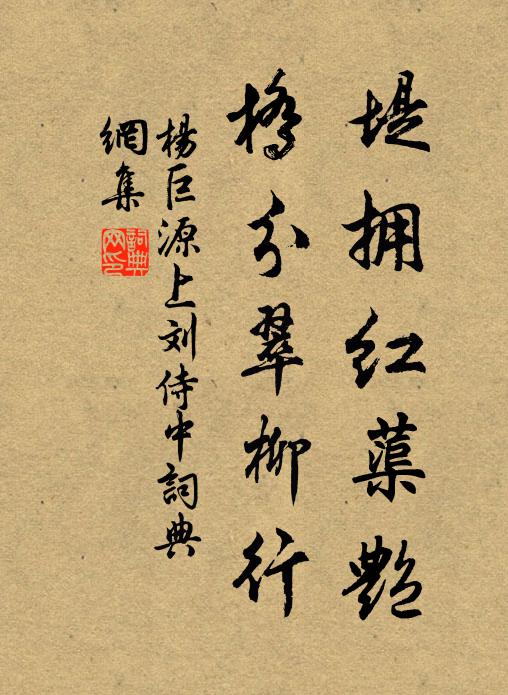 堤拥红蕖艳
桥分翠柳行
杨巨源上刘侍中詞典
網集
詞典
网印